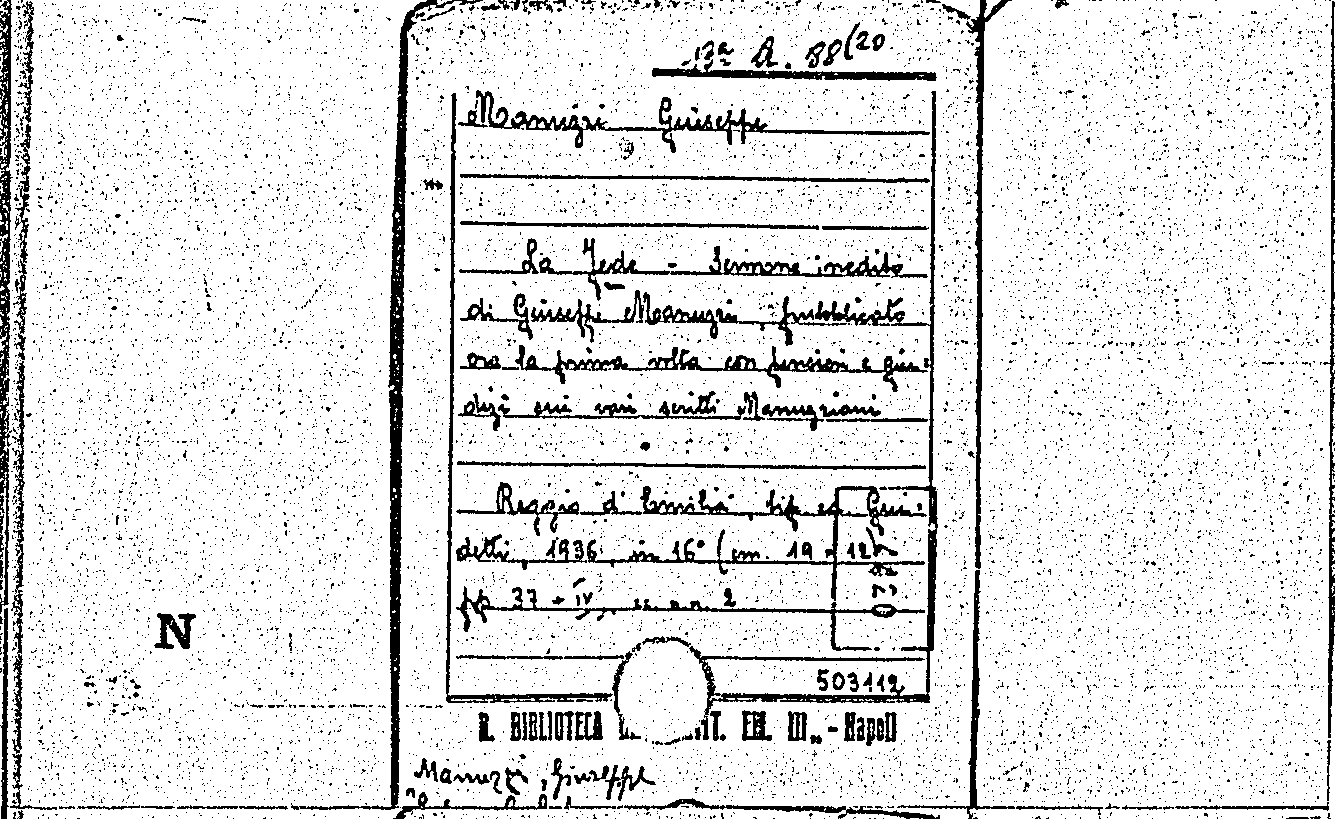 13ª A. 88(20
Manuzzi Giuseppe
La Fede - Sermone inedito
di Giuseppe Manuzzi, pubblicato
ora la prima volta con pensieri e giu=
dizi sui vari scritti Manuzziani
Reggio d' Emilia, tip. ed. Gui=
detti, 1936, in 16° (cm. 19 × 12)
pp. 37 + IV, cc. n.n. 2
503112
R. BIBLIOTECA IT. EM. III„ - Napoli
Manuzzi, Giuseppe
N